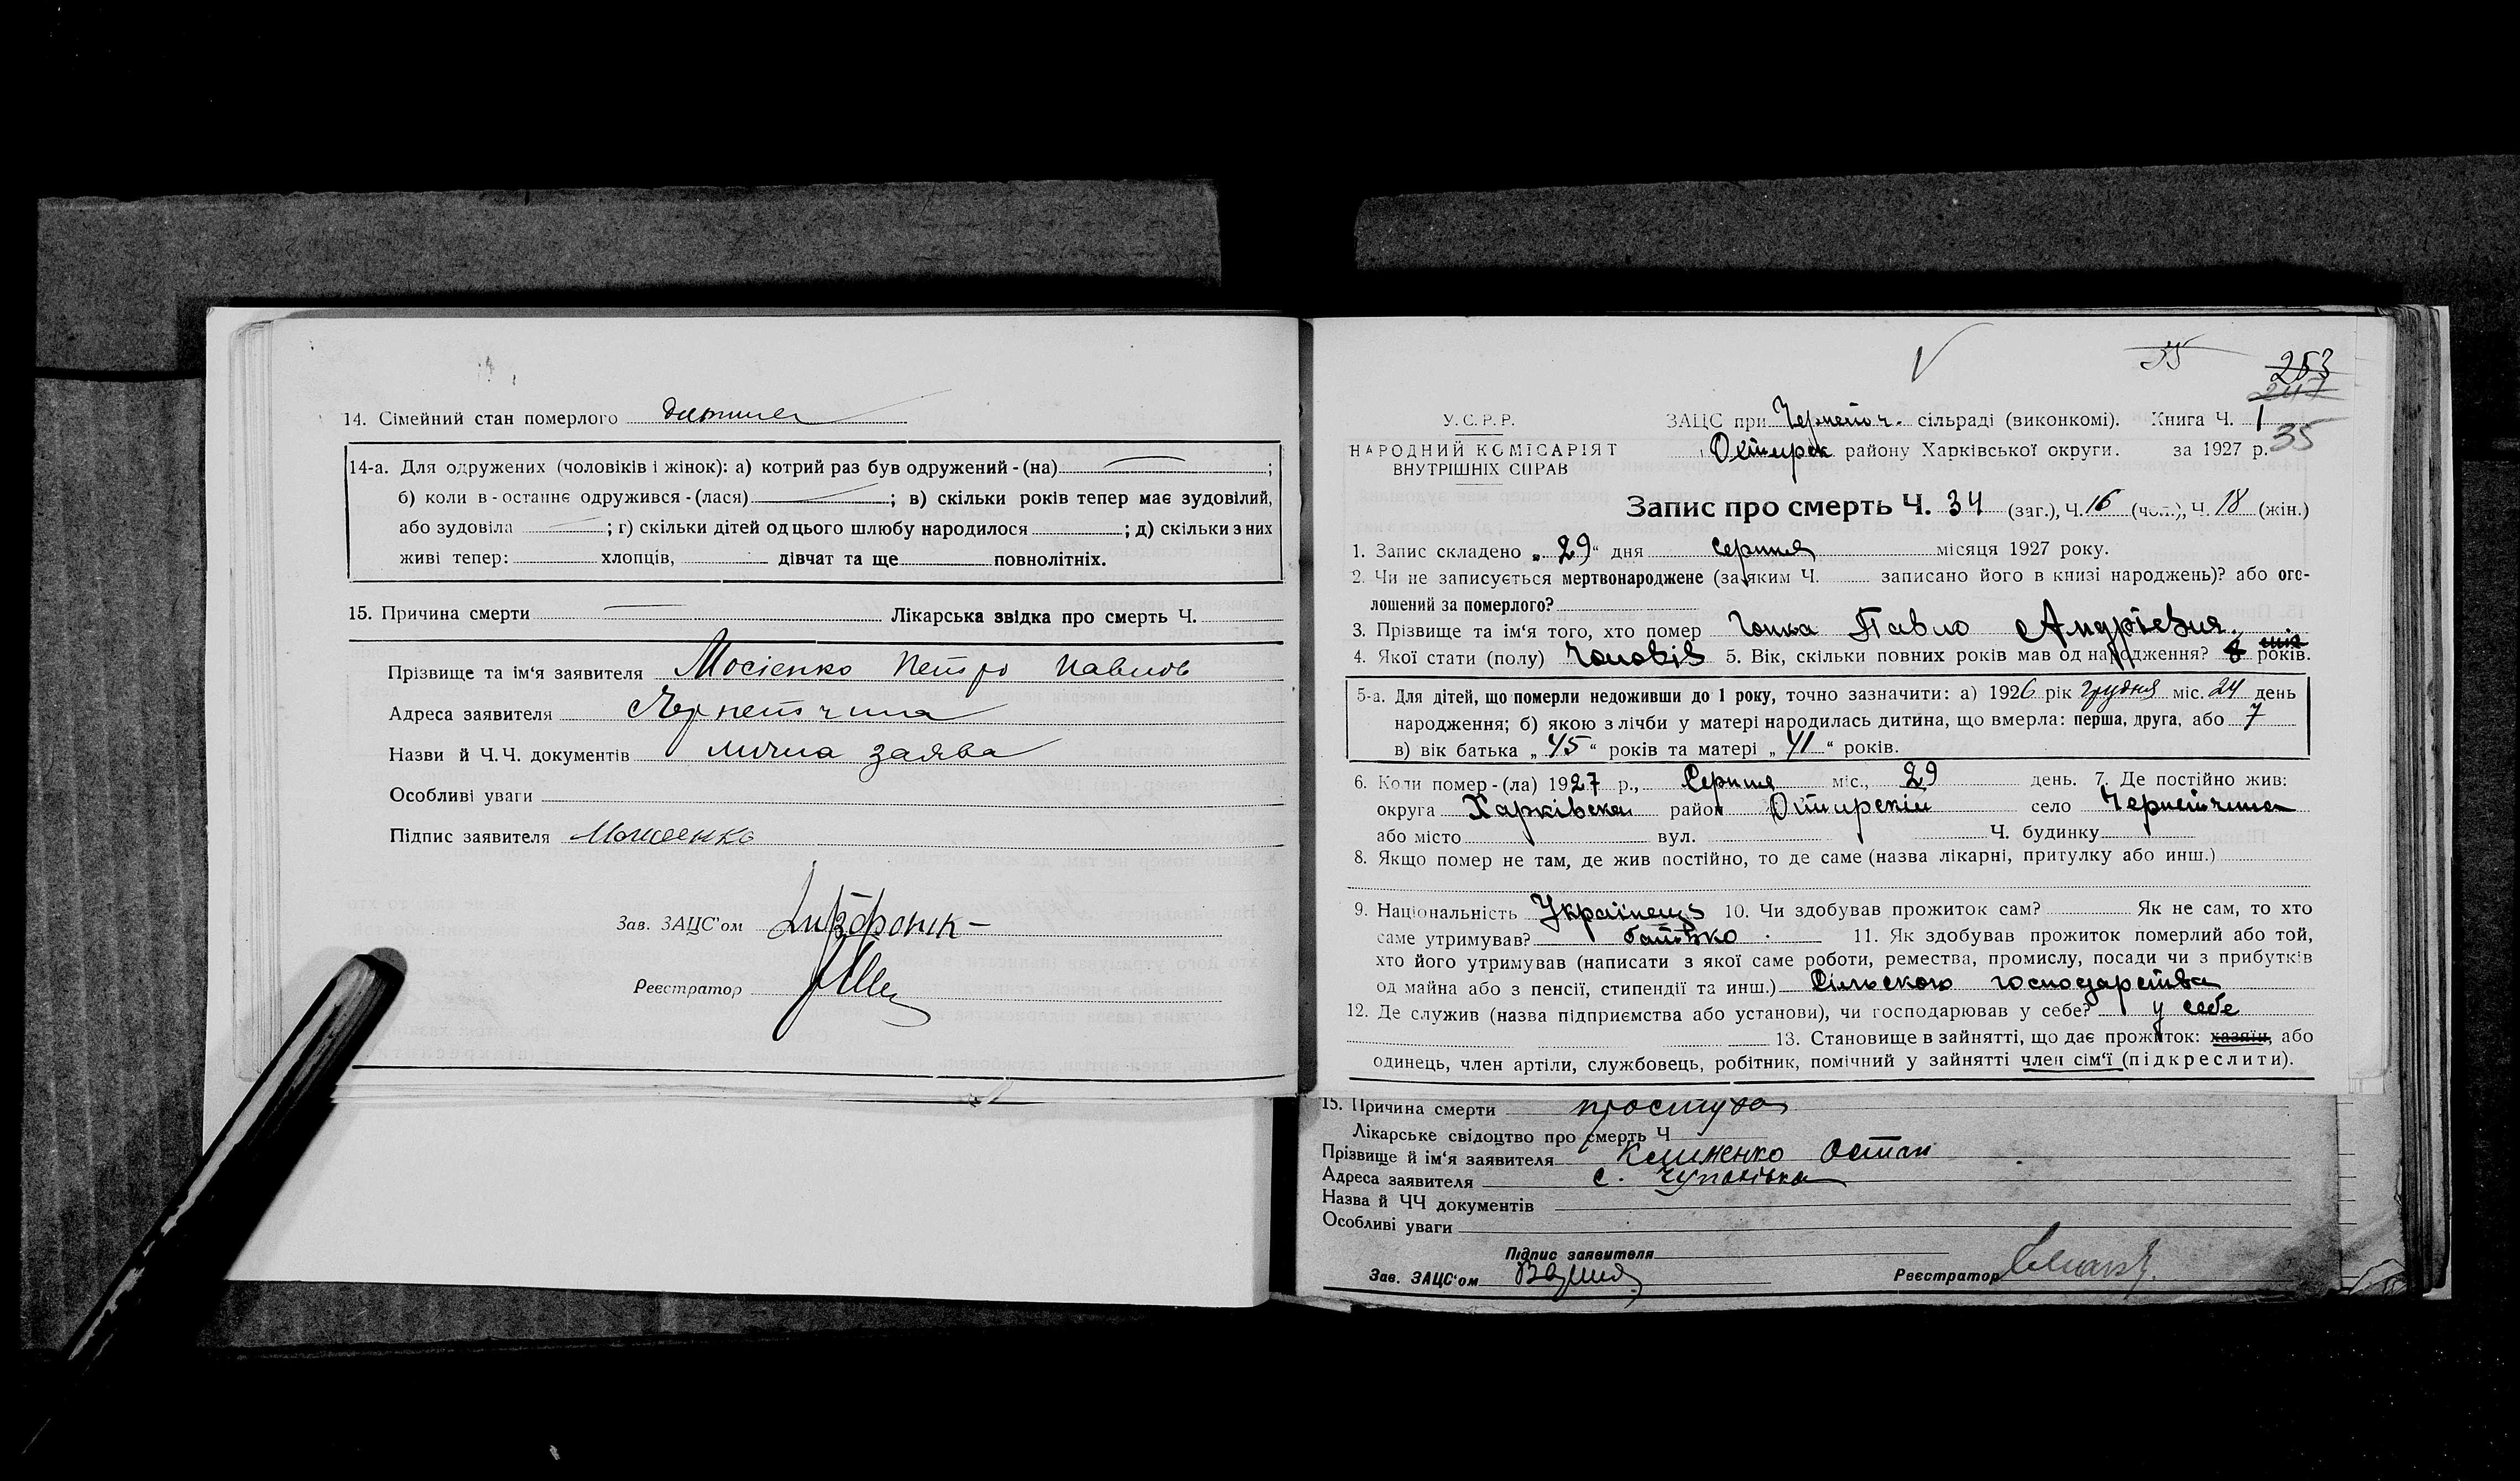 14. Сімейний стан померлого дитина
14-а. Для одружених (чоловіків і жінок): а) котрий раз був одружений - (на) ;
б) коли в - останнє одружився - (лася) ; в) скільки років тепер має зудовілий,
або зудовіла ; г) скільки дітей од цього шлюбу народилося ; д) скільки з них
живі тепер: хлопців, дівчат та ще повнолітніх.
15. Причина смерти Лікарська звідка про смерть Ч.
Прізвище та ім'я заявителя Мосієнко Петро Павлов
Адреса заявителя Чернетчина
Назви й Ч. Ч. документів лична заява
Особливі уваги
Підпис заявителя
Зав. ЗАЦС'ом
Реєстратор
35
253
247
У. С. Р. Р. ЗАЦС при Чернетч. сільраді (виконкомі). Книга Ч. 1
НАРОДНИЙ КОМІСАРІЯТ Охтирск району Харківської округи. за 1927 р. 35
ВНУТРІШНІХ СПРАВ
Запис про смерть Ч. 34 (заг.), Ч. 16 (чол.), Ч. 18 (жін.)
1. Запис складено „ 29 “ дня серпня місяця 1927 року.
2. Чи не записується мертвонароджене (за яким Ч. записано його в книзі народжень)? або ого-
лошений за померлого?
3. Прізвище та ім'я того, хто помер Чопка Павло Андрієвич
4. Якої стати (полу) Чоловів 5. Вік, скільки повних років мав од народження? 8 міс років.
5-а. Для дітей, що померли недоживши до 1 року, точно зазначити: а) 1926 рік грудня міс. 24 день
народження; б) якою з лічби у матері народилась дитина, що вмерла: перша, друга, або 7
в) вік батька „ 45 “ років та матері „ 41 “ років.
6. Коли помер - (ла) 1927 р., Серпня міс., 29 день. 7. Де постійно жив:
округа Харківска район Охтирскій село Чернетчина
або місто вул. Ч. будинку
8. Якщо помер не там, де жив постійно, то де саме (назва лікарні, притулку або инш.)
9. Національність Українець 10. Чи здобував прожиток сам? Як не сам, то хто
саме утримував? батько 11. Як здобував прожиток померлий або той,
хто його утримував (написати з якої саме роботи, ремества, промислу, посади чи з прибутків
од майна або з пенсії, стипендії та инш.) Сільского господарства
12. Де служив (назва підприємства або установи), чи господарював у себе? у себе
13. Становище в зайнятті, що дає прожиток: хазяїн, або
одинець, член артіли, службовець, робітник, помічний у зайнятті член сім'ї (підкреслити).
15. Причина смерти простуда
Лікарське свідоцтво про смерть Ч
Прізвище й ім'я заявителя Клименко Остап
Адреса заявителя с. Чупахівка
Назва й ЧЧ документів
Особливі уваги
Підпис заявителя
Зав. ЗАЦС'ом Реєстратор